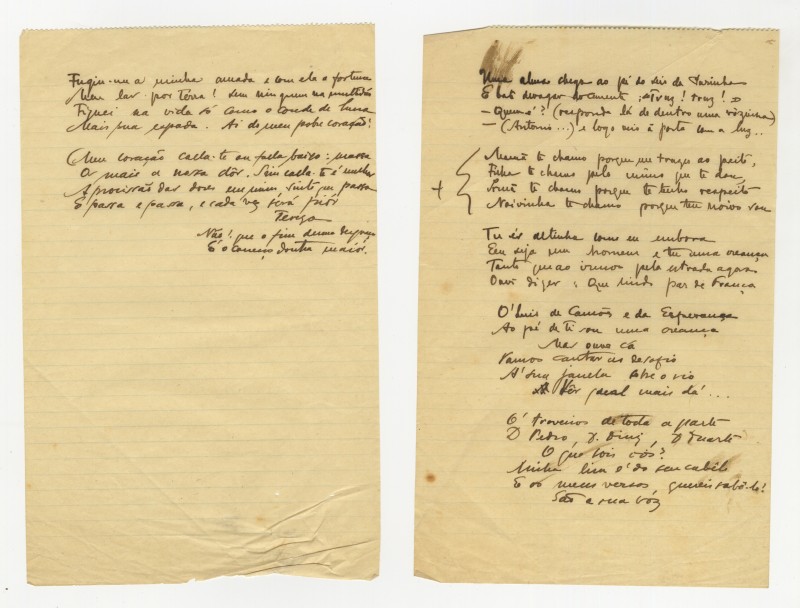 Fugiu-me a minha amada e com ela a fortuna
Meu lar por terra! Sem ninguem na multidão
Fiquei na vida só como o conde de Luna
Mais sua espada. Ai do meu pobre coração!
Meu coração cala-te ou fala baixo: 
Or mais a nossa dôr. Sim cala-te é melhor
A procissão das dores em mim, sinto que passa
E passa e passa, e cada vez será peior
Não! que o fim duma desgraça
É o começo doutra maior.
Uma alma chega ao pé do seis de Turinha
E bate devagar docemente: Truz! truz!
- Quem é? (responde lá de dentro uma vózinha)
- (Antonio...) e logo vis á porta com a luz..
Mamã te chamo porque me trazes ao peito,
Filha te chamo pelo mimo que te dou,
Irmã te chamo porque te tenho respeito
Noivinha te chamo porque teu noivo sou
+
Tu és altinha como eu embora
Eu seja um homem e tu uma creança
Tanto que ao irmos pela estrada agora
Ouvi dizer: Que lindo par de França
Ó Luis de Camões e da Esperança
Ao pé de ti sou uma creança
Mas ouve cá
Vamos cantar ao desafio
Á sua janela sobre o rio
A vêr qual mais dá...
Ó troveiros de toda a parte
D Pedro, D. Diniz, D Duarte
O que sois vós?
Minha lira é do seu cabelo
E os meus versos quereis sabê-lo!
São a sua vóz